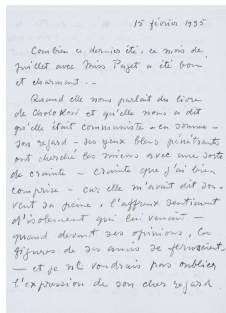 15 février 1935
Combien ce dernier été, ce mois de
juillet avec Miss Paget a été bon
et charmant ..
Quand elle nous parlait du livre
de Cholokov et qu'elle nous a dit
qu'elle était communiste - en somme -
son regard - ses yeux bleus pénétrants
ont cherché les miens avec une sorte
de crainte - crainte que j'ai bien
comprise - car elle m'avait dit sou-
vent sa peine, l'affreux sentiment
d'isolement qui lui venait -
quand devant ses opinions, les
figures de ses amis se fermaient,
- et je ne voudrais pas oublier
l'expression de son cher regard